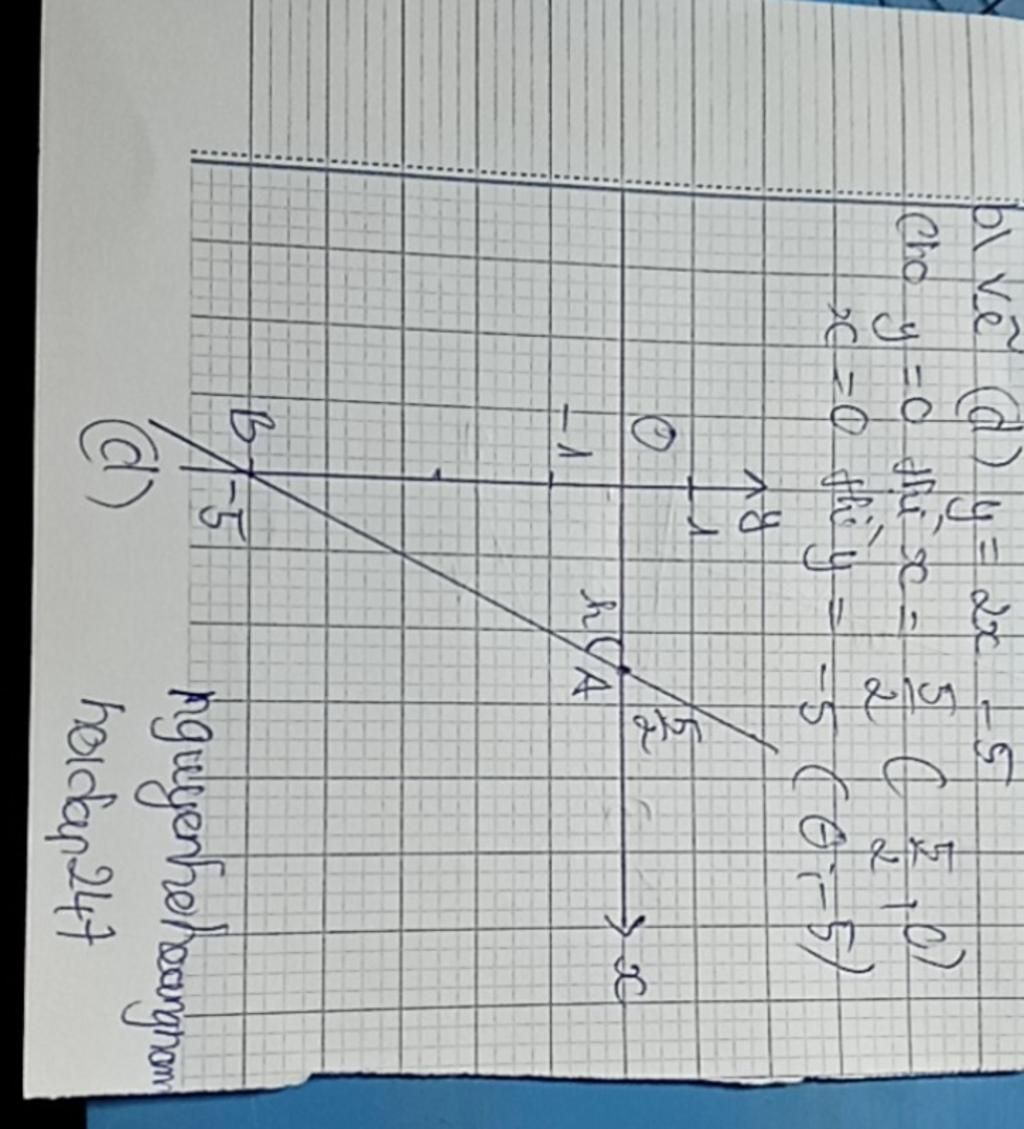 b\ vẽ (d) y = 2x - 5
Cho y = 0 thì x = 5/2 ( 5/2 ; 0)
x = 0 thì y = -5 (0 ; -5)
y
1
O
5/2
x
-1
A
B
-5
(d)
hoidap247